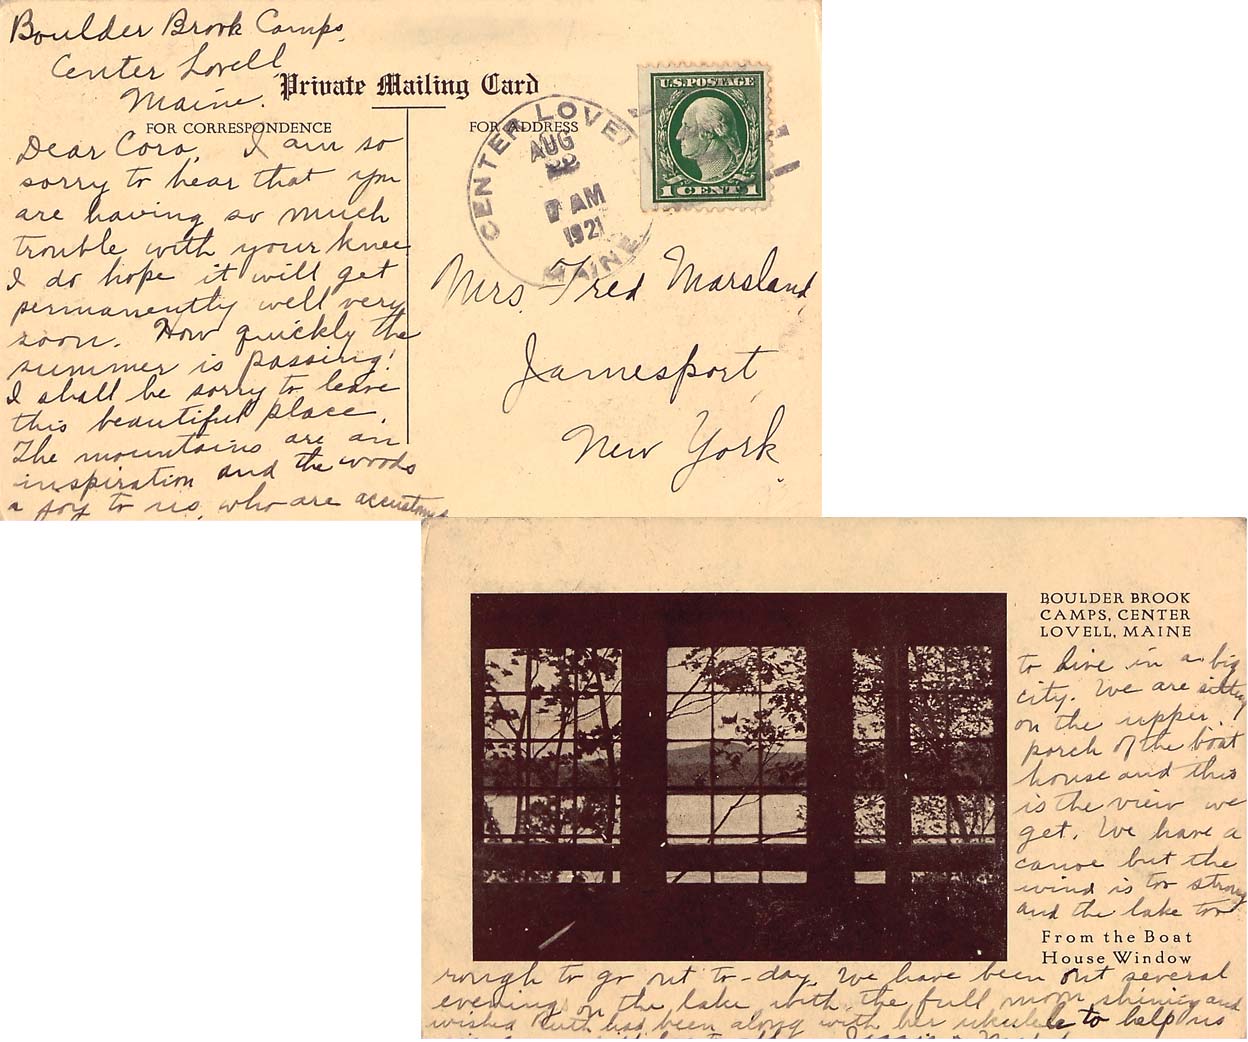 Boulder Brook Camps,
Center Lovell
Maine.
Private Mailing Card
FOR CORRESPONDENCE
FOR ADDRESS
Dear Cora, I am so
sorry to hear that you
are having so much
trouble with your knee
I do hope it will get
permanently well very
soon. How quickly the
summer is passing!
I shall be sorry to leave
this beautiful place.
The mountains are an
inspiration and the woods
a joy to us, who are accustomed
CENTER LOVELL
AUG
22
7 AM
1921
MAINE
U.S. POSTAGE
1 CENT 1
Mrs. Fred Marsland,
Jamesport,
New York
BOULDER BROOK
CAMPS, CENTER
LOVELL, MAINE
to live in a big
city. We are sitting
on the upper
porch of the boat
house and this
is the view we
get. We have a
canoe but the
wind is too strong
and the lake too
From the Boat
House Window
rough to go out to-day. We have been out several
evening on the lake with the full moon shining and
wished Ruth had been along with her ukulele to help us